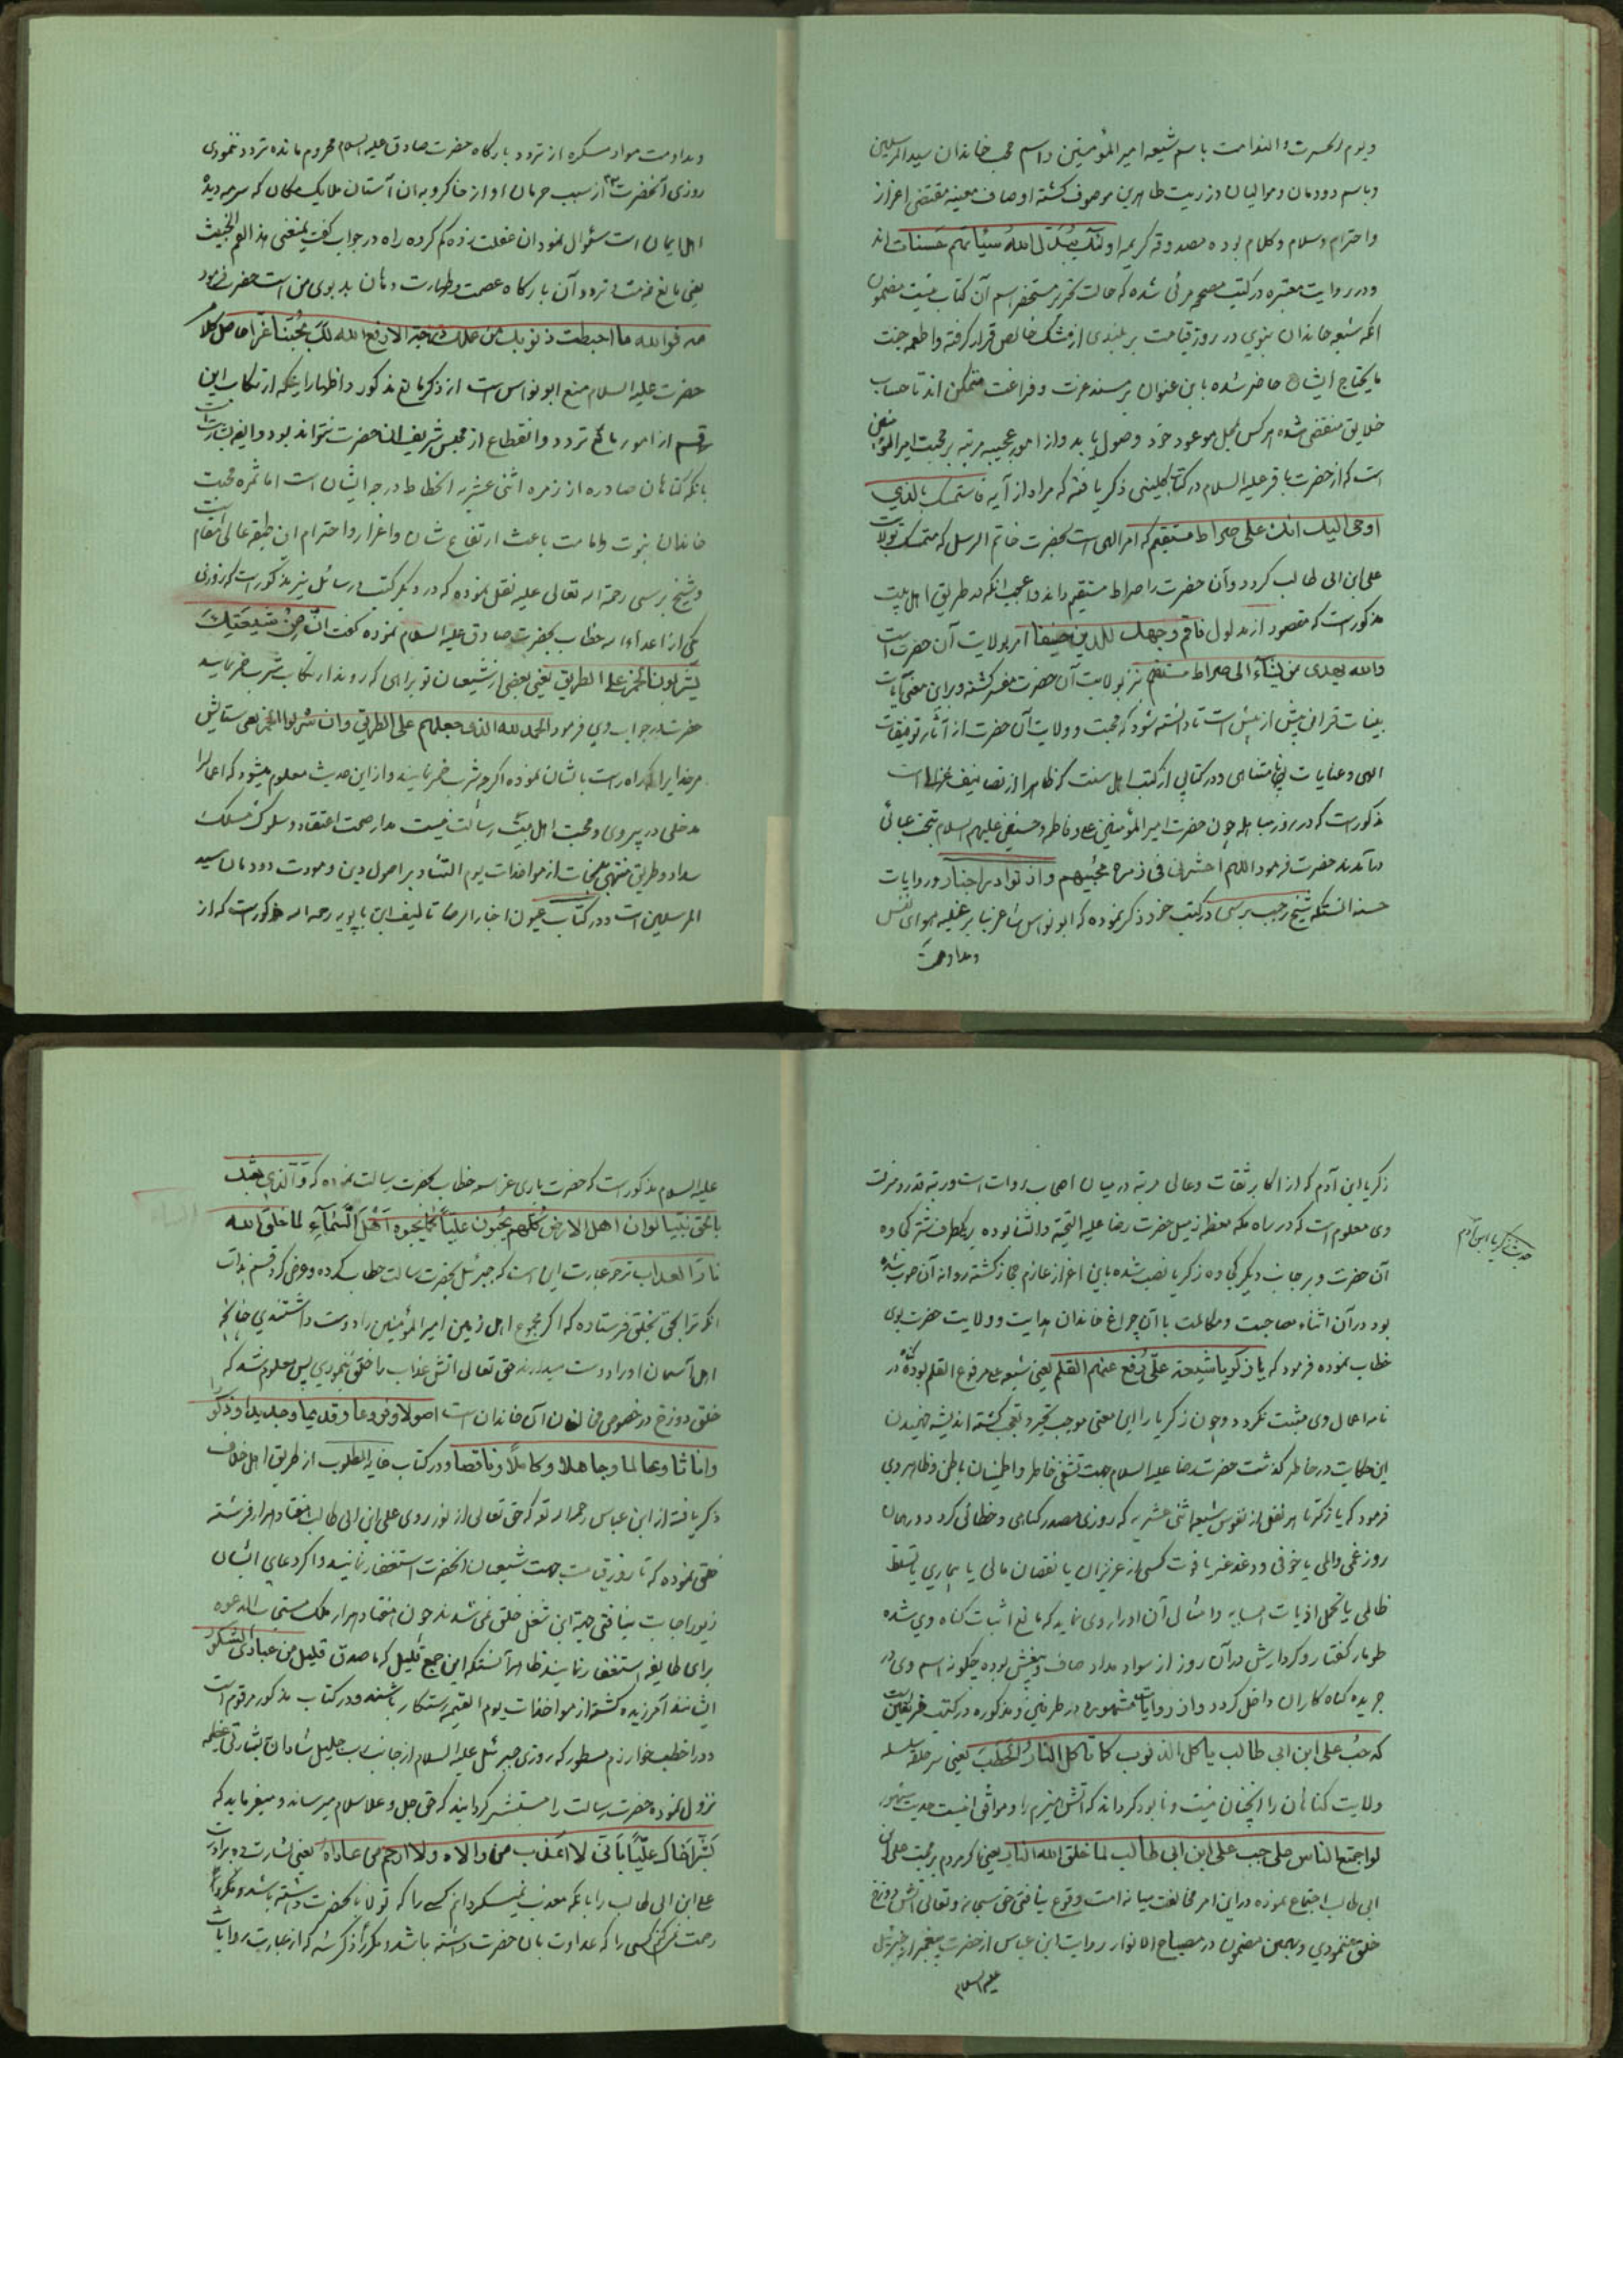 و یوم الحسرت و الندامت باسم شیعه امیر المؤمنین و اسم محب خاندان سید المرسلین
و باسم دودمان و موالیان و ذریت طاهرین موصوف کشته اوصاف معینه مقتضی اعزاز
و احترام و سلام و کلام بوده مصدوقه کریمه اولئک یبدّل الله سیّئاتهم حسنات اند
و در روایت معتبره در کتب مصححه مرئی شده که حالت تحریر مستحضر اسم آن کتاب نیست مضمون
انکه شیعه خاندان نبوی در روز قیامت بر بلندی از مشک خالص قرار کرفته و اطعمه جنت
ما یحتاج ایشان حاضر شده باین عنوان بر مسند عزت و فراغت متمکن اند تا حساب
خلایق منقضی شده هر کس بمحل موعود خود وصول یابد و از امور عجیبه مرتبه بر محبت امیر المؤمنین
است که از حضرت باقر علیه السلام در کتاب کلینی ذکر یافته که مراد از آیه فاستمسک بالذی
اوحی الیک انک علی صراط مستقیم که امر الهی است بحضرت خاتم الرسل که متمسک بولایت
علی ابن ابی طالب کردد و آن حضرت را صراط مستقیم داند و عجب انکه در طریق اهل بیت
مذکور است که مقصود از مدلول فاقم وجهک للدین حنیفا امر بولایت آن حضرت است
والله یهدی من یشآء الی صراط مستقیم نیز بولایت آن حضرت مفسر کشته و براین معنی آیات
بینات قرانی بیش از پیش است تا دانسته شود که محبت و ولایت آن حضرت از آثار توفیقات
الهی و عنایات نامتناهی و در کتابی از کتب اهل سنت که ظاهرا از تصانیف غزالی است
مذکور است که در روز مباهله چون حضرت امیر المؤمنین علی و فاطمه و حسنین علیهم السلام بتحت عبائی
در آمدند حضرت فرمود اللهم احشرنی فی زمرة محبّیهم و از نوادر اخبار و روایات
حسنه انستکه شیخ رجب برسی در کتب خود ذکر نموده که ابو نواس شاعر بنا بر غلبه هوای نفس
و مداومت
و مداومت مواد مسکره از تردد بارکاه حضرت صادق علیه السلام محروم مانده تردد ننمودی
روزی آنحضرت از سبب حرمان او از خاکروبه ان آستان ملایک مکان که سرمه دیده
اهل ایمان است سئوال نمود ان غفلت زده کم کرده راه در جواب کفت یمنعنی هذا الفم الخبیث
یعنی مانع من از تردد آن بارکاه عصمت و طهارت دهان بد بوی من است حضرت فرمود
مه فوالله ما احبطت ذنوبک من درجة الا رفع الله لک بحبّنا غرّا حاصل کلام
حضرت علیه السلام منع ابو نواس است از ذکر مانع مذکور و اظهار اینکه ارتکاب این
قسم از امور مانع تردد و انقطاع از مجلس شریف ان حضرت نتواند بود و ایضا بشارت است
بانکه کناهان صادره از زمره اثنی عشریه انحطاط درجه ایشان است اما ثمره محبت
خاندان نبوت و امامت باعث ارتفاع شان و اعزاز و احترام ان طبقه عالی مقام است
و شیخ برسی رحمة الله تعالی علیه نقل نموده که در دیکر کتب و رسائل نیز مذکور است که روزی
یکی از اعداء الله خطاب بحضرت صادق علیه السلام نموده کفت انّ من شیعتک
یشربون الخمر علی الطریق یعنی بعضی از شیعیان تو براهی که روند ارتکاب شرب خمر نمایند
حضرت در جواب وی فرمود الحمد لله الذی جعلهم علی الطریق و ان شربوا الخمر یعنی ستایش
مر خدایرا که راه راست بایشان نموده اکرچه شرب خمر نمایند و از این حدیث معلوم میشود که اعمال را
مدخلی در پیروی و محبت اهل بیت رسالت نیست مدار صحت اعتقاد و سلوک مسلک
سداد و طریق منتهی بنجات از مواخذات یوم التناد بر اصول دین و مودت دودمان سید
المرسلین است و در کتاب عیون اخبار الرضا تالیف ابن بابویه رحمه الله مذکور است که از
زکریا ابن آدم که از اکابر ثقات و عالی مرتبه در میان اصحاب روات است و رتبه قدر و منزلت
وی معلوم است که در راه مکه معظمه زمیل حضرت رضا علیه التحیة و الثنا بوده یکطرف شتر کجاوه
آن حضرت و بر جانب دیکر کجاوه زکریا نصب شده باین اعزاز عازم حجاز کشته روانه آن صوب شده
بود در آن اثناء مصاحبت و مکالمت با آن چراغ خاندان هدایت و ولایت حضرت بوی
خطاب نموده فرمود که یا زکریا شیعة علیّ رفع عنهم القلم یعنی شیعه علی مرفوع القلم بوده کناه در
نامه اعمال وی مثبت نکردد و چون زکریا را این معنی موجب تحیر و تعجب کشته اندیشه فهمیدن
این حکایت در خاطر کذشت حضرت رضا علیه السلام جهت تشفی خاطر و اطمینان باطن و ظاهر وی
فرمود که یا زکریا هر نفس از نفوس شیعه اثنی عشریه که روزی مصدر کناهی و خطائی کردد در همان
روز غمی و المی یا خوفی و دغدغه یا فوت کسی از عزیزان یا نقصان مالی یا بیماری یا تسلط
ظالمی یا تحمل اذیات همسایه و امثال آن او را روی نماید که مانع اثبات کناه وی شده
طومار کفتار و کردارش در آن روز از سواد مداد صاف و بیغش بوده چکونه اسم وی در
جریده کناه کاران داخل کردد و از روایات مشهوره در طرفین و مذکوره در کتب فریقین است
که حبّ علی ابن ابی طالب یاکل الذنوب کما تاکل النار الحطب یعنی سر حلقه سلسله
ولایت کناهان را انچنان نیست و نابود کرداند که آتش هیزم را و موافق انیست حدیث مشهور
لو اجتمع الناس علی حب علی ابن ابی طالب لما خلق الله النار یعنی اکر مردم بر محبت علی ابن
ابی طالب اجتماع نموده در این امر مخالفت میانه امت وقوع نیافتی حق سبحانه و تعالی آتش دوزخ
خلق ننمودی و بهمین مضمون در مصباح الانوار روایت ابن عباس از حضرت پیغمبر از جبرئیل
علیه السلام
حدیث زکریا ابن آدم
علیه السلام مذکور است که حضرت باری عز اسمه خطاب بحضرت رسالت نموده که و الّذی بعثک
بالحق نبیّا لو ان اهل الارض کلّهم یحبّون علیّا کما یحبّوه اهل السّمآء لما خلق الله
نارا العذاب ترجمه عبارت این است که جبرئیل بحضرت رسالت خطاب کرده و عرض کرد قسم بذات
انکه ترا بحق بخلق فرستاده که اکر مجموع اهل زمین امیر المؤمنین را دوست داشتندی چنانچه
اهل آسمان او را دوست میدارند حق تعالی اتش عذاب را خلق ننمودی پس معلوم شد که
خلق دوزخ در خصوص مخالفان آن خاندان است اصولا و فروعا و قدیما و جدیدا و ذکورا
و اناثا و عالما و جاهلا و کاملا و ناقصا و در کتاب غایه المطلوب از طریق اهل خلاف
ذکر یافته از ابن عباس رحمه الله که حق تعالی از نور روی علی ابن ابی طالب هفتاد هزار فرشته
خلق نموده که تا روز قیامت جهت شیعیان انحضرت استغفار نمایند و اکر دعای ایشان
زیور اجابت نیافتی جهة این شغل خلق نمی شدند چون هفتاد هزار ملک مستجاب الدعوه
برای طایفه استغفار نمایند ظاهر آنستکه این جمع قلیل که ما صدق قلیل من عبادی الشکور
ایشانند آمرزیده کشته از مواخذات یوم القیمه رستکار باشند و در کتاب مذکور مرقوم است
و در اخطب خوارزم مسطور که روزی جبرئیل علیه السلام از جانب رب جلیل شادان بشارتی عظیمه
نزول نموده حضرت رسالت را مستبشر کردانید که حق جل و علا سلام میرساند و میفرماید که
بشّر اخاک علیّا بانّی لا اعذب من والاه و لا ارحم من عاداه یعنی بشارت ده برادرت
علی ابن ابی طالب را بانکه معذب نمیسکردانم کسی را که تولا بانحضرت داشته باشد و
رحمت نمیکنم کسی را که عداوت بان حضرت داشته باشد و مکررا ذکر شد که از عبارت روایات